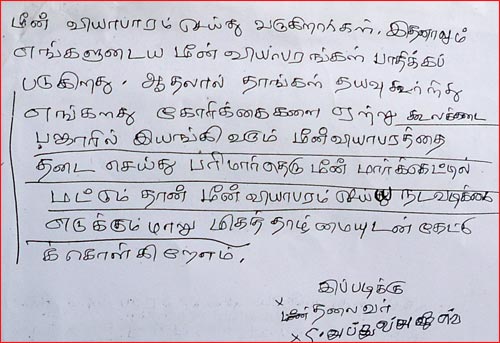 மீன் வியாபாரம் செய்து வருகிறார்கள். இதனாலும்
எங்களுடைய மீன் வியாபரங்கள் பாதிக்கப்
படுகிறது. ஆதலால் தாங்கள் தயவு கூர்ந்து
எங்களது கோரிக்கைகளை ஏற்று கூலக்கடை
பஜாரில் இயங்கி வரும் மீன்வியாபரத்தை
தடை செய்து மீன் மார்க்கெட்டில்
மட்டும் தான் மீன்வியாபரம் செய்ய நடவடிக்கை
எடுக்கும்மாறு மிகத்தாழ்மையுடன் கேட்டு
க் கொள்கிறோம்.
இப்படிக்கு
மீன் தலைவர்